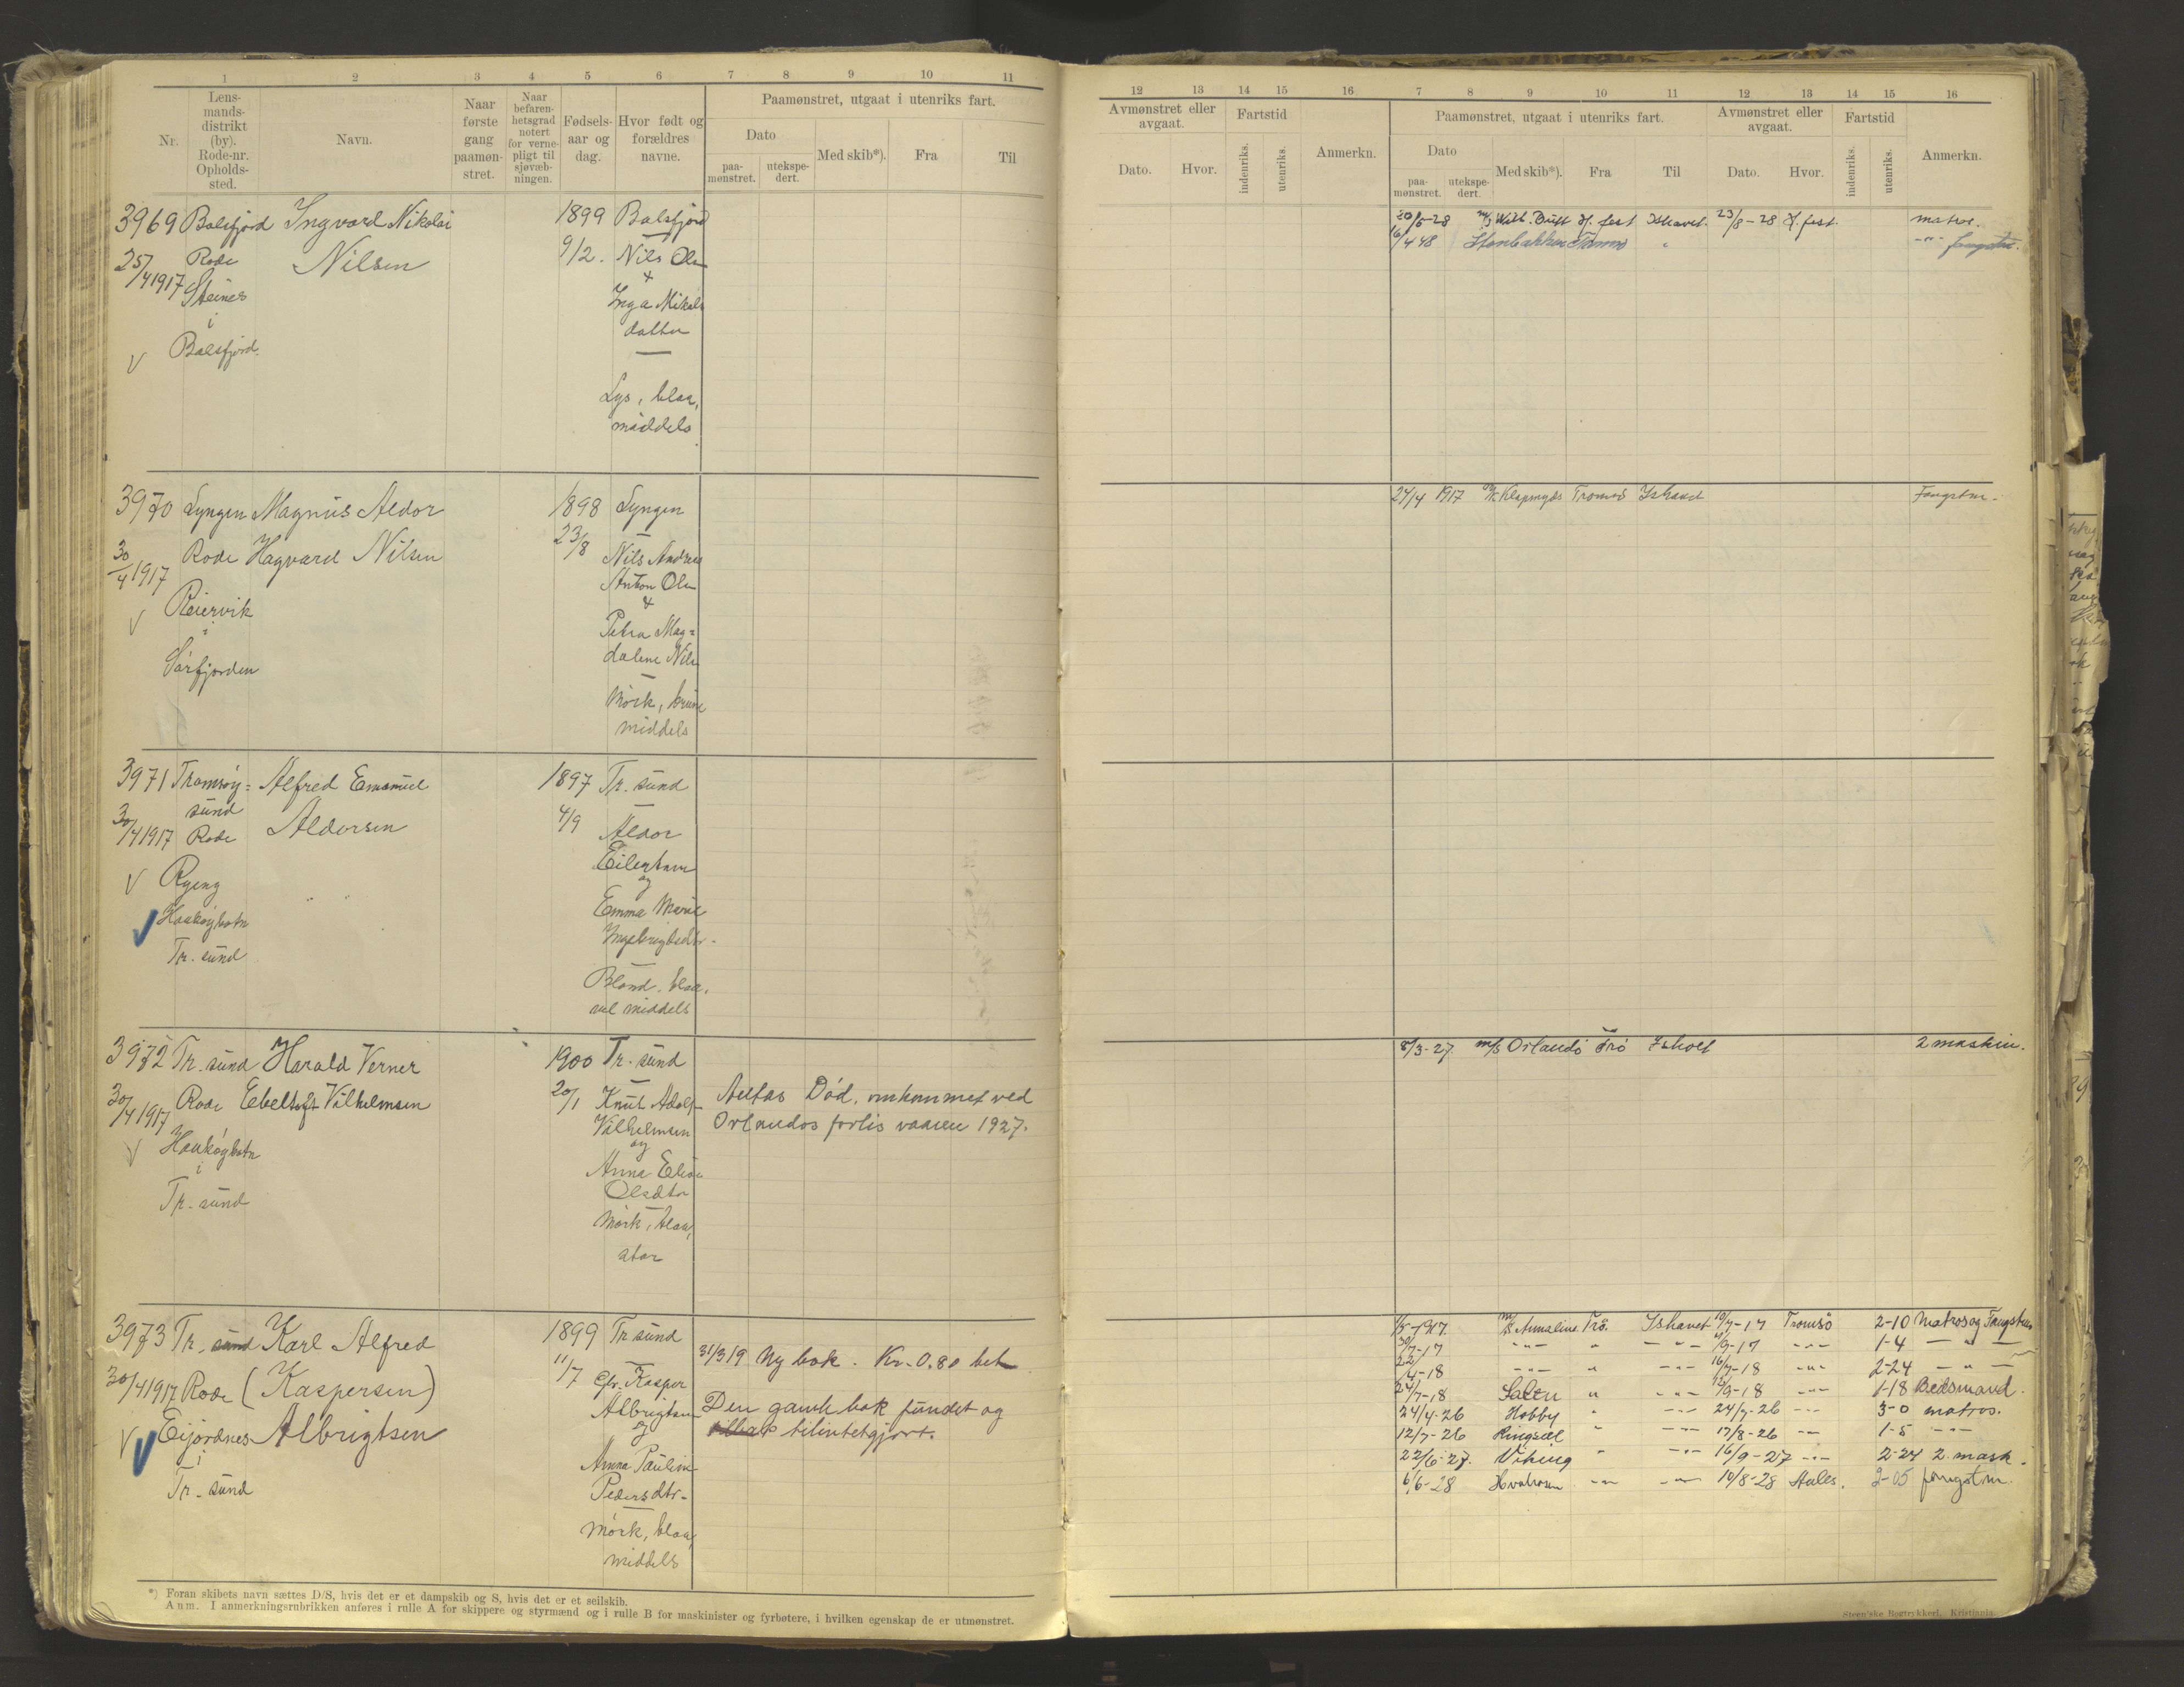 1 2 3 4 5 6 7 8 9 10 11
Nr.
Lens-
mands-
distrikt
(by).
Rode-nr.
Opholds-
sted.
Navn.
Naar
første
gang
paamøn-
stret.
Naar
befaren-
hetsgrad
notert
for verne-
pligt til
sjøvæb-
ningen.
Fødsels-
aar og
dag.
Hvor født og
forældres
navne.
Paamønstret, utgaat i utenriks fart.
Dato
paa-
mønstret.
utekspe-
dert.
Med skib*).
Fra
Til
12 13 14 15 16 7 8 9 10 11 12 13 14 15 16
Avmønstret eller
avgaat.
Dato.
Hvor.
Fartstid
indenriks.
utenriks.
Anmerkn.
Paamønstret, utgaat i utenriks fart.
Dato
paa-
mønstret.
utekspe-
dert.
Med skib*).
Fra
Til
Avmønstret eller
avgaat.
Dato.
Hvor.
Fartstid
indenriks.
utenriks.
Anmerkn.
3969 Balsfjord Ingvard Nikolai
Nilsen
25/4 1917 Rode
Steines
i
Balsfjord.
1899
9/2.
Balsfjord
Nils Olsn
+
Inga Mikals
datter
Lys, blaa,
middels
20/5-28 M/S Will Butt H.fest Ishavet 23/8-28 H.fest. matros.
16/4 48 Tromsö " -"- fangstm.
3970 Lyngen Magnus Aldor
30/4 1917 Rode Hagvard Nilsen
Reiervik
i
Sörfjorden
1898
23/8
Lyngen
Nils Andreas
Anton Olsn
+
Petra Mag=
dalene Nils
Mörk, brune
middels
24/4 1917 Klapmyds Tromsö Ishavet Fangstm.
3971 Tromsöy= Alfred Emanuel
sund
30/4 1917 Rode Aldorsen
Ryeng
Haaköybotn
Tr. sund
1897
4/9
Tr. sund
Aldor
Eilertsen
og
Emma Marie
Ingebrigtsdtr.
Blond, blaa,
vel middels
3972 Tr. sund Harald Verner
30/4 1917 Rode Ebeltoft Vilhelmsen
Haaköybotn
i
Tr. sund
1900
20/1
Tr. sund
Knut Adolf
Vilhelmsen
og
Anna Elise
Olsdtr
Mörk, blaa,
stor
Aettas Död. omkommet ved
Orlandos forlis vaaren 1927.
8/3-27. m/s Orlando Trö Ishavet 2 maskin.
3973 Tr. sund Karl Alfred
30/4 1917 Rode (Kaspersen)
Eijordnes Albrigtsen
i
Tr. sund
1899
11/7
Tr sund
Efr. Kasper
Albrigtsen
og
Anna Pauline
Pedersdtr.
Mörk, blaa,
middels
31/3 19 Ny bok. Kr. 0.80 bet
Den gamle bok fundet og
tilintetgjort.
1/5-1917. M/S Annaline Trö. Ishavet 10/7-17 Tromsö 2-10 Matros og Fangstm
30/7-17 -"- " -"- 4/9-17 -"- 1-4 -"-
22/4-18 -"- " -"- 16/7-18 -"- 2-24 -"-
24/7-18 Salen " -"- 12/9-18 -"- 1-18 Bedsmand.
24/4-26 Hobby " -"- 24/7-26 -"- 3-0 matros.
12/7-26 Ringsæl " -"- 17/8-26 -"- 1-5 -"-
22/6-27. Viking " -"- 16/9-27 -"- 2-24 2. mask.
6/6-28 Hvalrosen -"- -"- 10/8-28 Aales. 2-05 fangstm.
*) Foran skibets navn sættes D/S, hvis det er et dampskib og S, hvis det er et seilskib.
Anm. I anmerkningsrubrikken anføres i rulle A for skippere og styrmænd og i rulle B for maskinister og fyrbøtere, i hvilken egenskap de er utmønstret.
Steen'ske Bogtrykkeri, Kristiania.